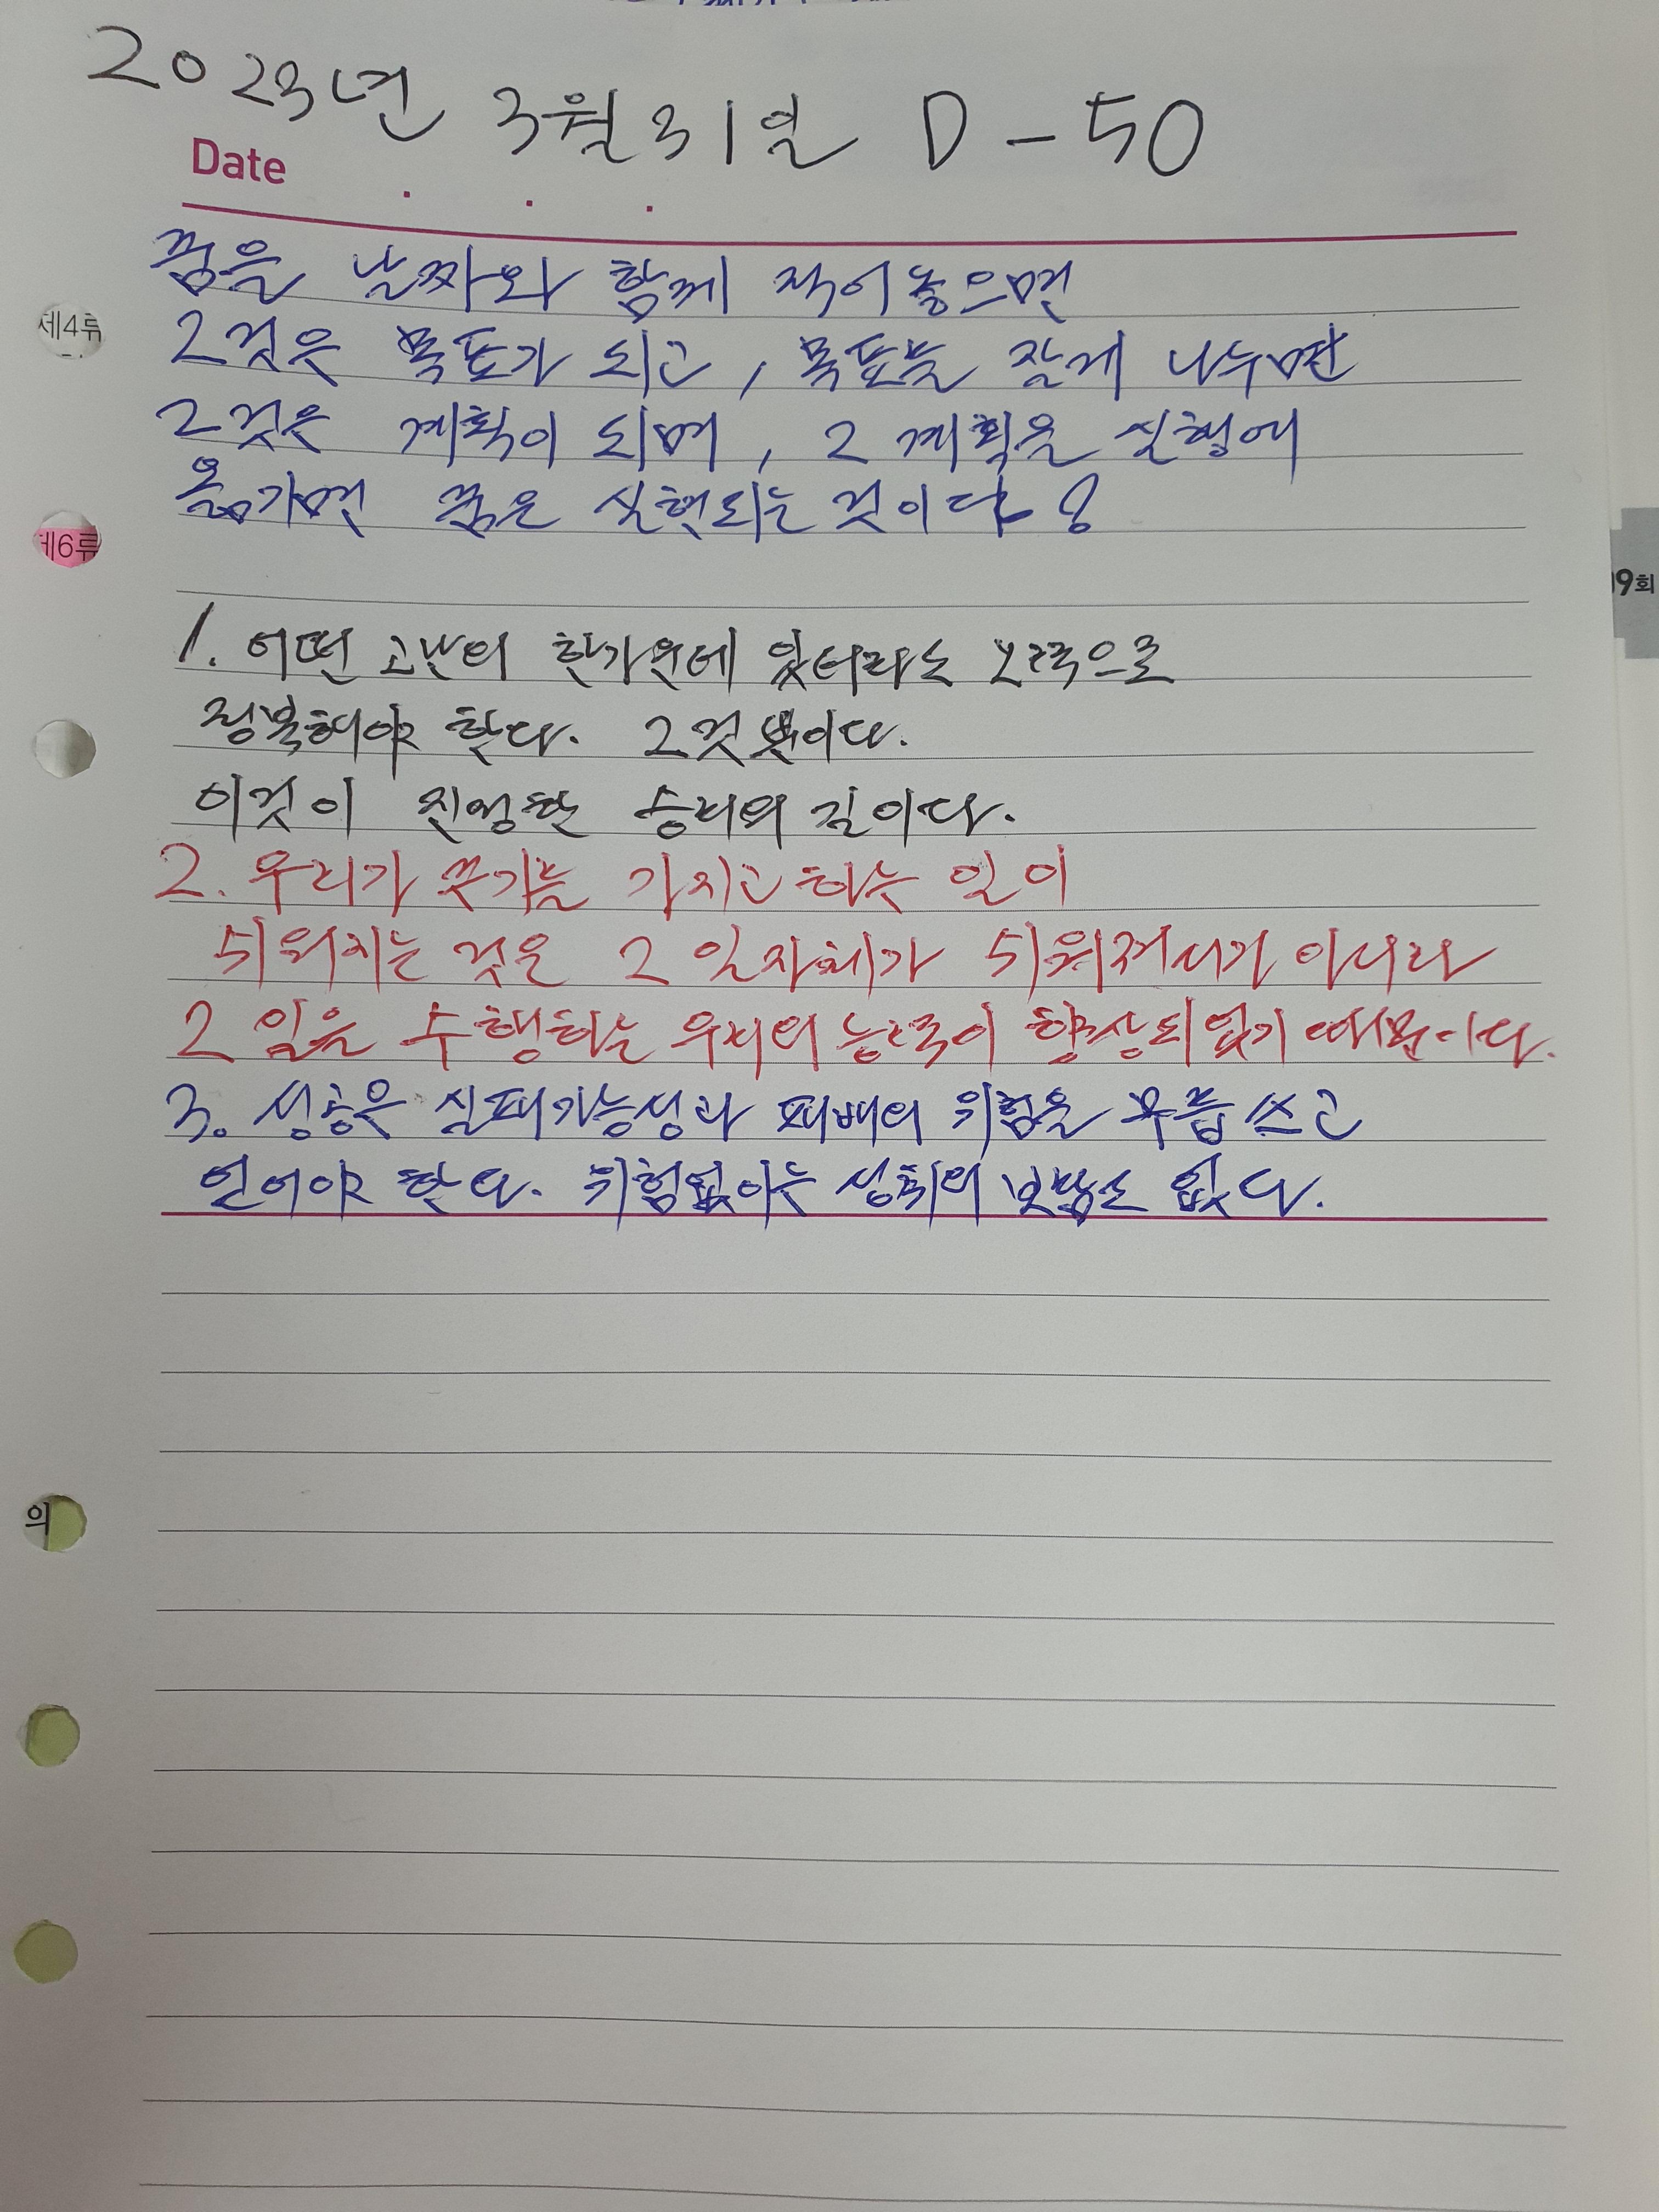 2023년 3월 31일 D-50
Date . . .
꿈을 날짜와 함께 적어놓으면
그것은 목표가 되고, 목표를 잘게 나누면
그것은 계획이 되며, 그 계획을 실행에
옮기면 꿈은 실현되는 것이다!
1. 어떤 고난의 한가운데 있더라도 노력으로
정복해야 한다. 그것뿐이다.
이것이 진정한 승리의 길이다.
2. 우리가 끈기를 가지고 하는 일이
쉬워지는 것은 그 일 자체가 쉬워져서가 아니라
그 일을 수행하는 우리의 능력이 향상되었기 때문이다.
3. 성공은 실패가능성과 패배의 위험을 무릅쓰고
얻어야 한다. 위험없이는 성취의 보람도 없다.
제4류
제6류
9회
의